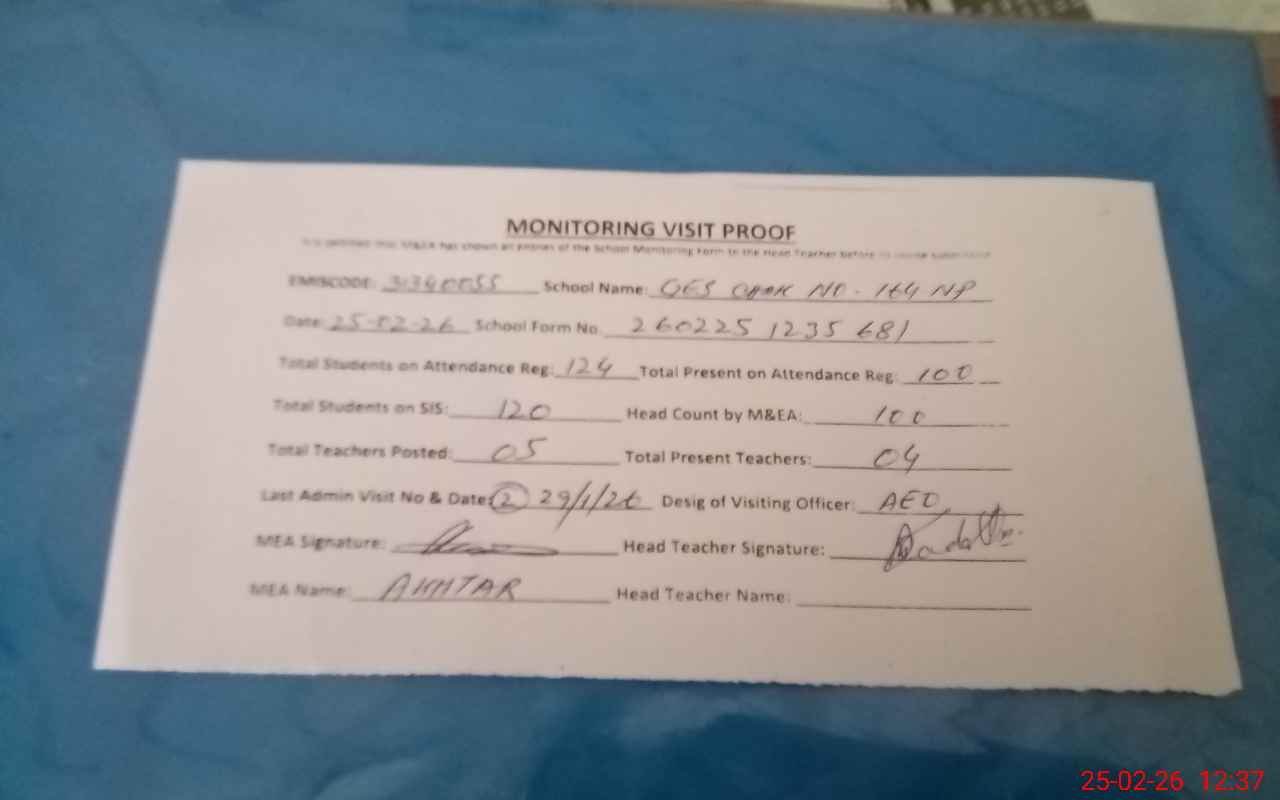 MONITORING VISIT PROOF
It is certified that M&EA has shown all entries of the School Monitoring Form to the Head Teacher before its online submission
EMISCODE: 31340055 School Name: GES CHAK NO. 164 NP
Date: 25-02-26 School Form No. 260225 1235 681
Total Students on Attendance Reg: 124 Total Present on Attendance Reg: 100
Total Students on SIS: 120 Head Count by M&EA: 100
Total Teachers Posted: 05 Total Present Teachers: 04
Last Admin Visit No & Date: 2 29/1/26 Desig of Visiting Officer: AEO
MEA Signature: Head Teacher Signature:
MEA Name: AKHTAR Head Teacher Name:
25-02-26 12:37